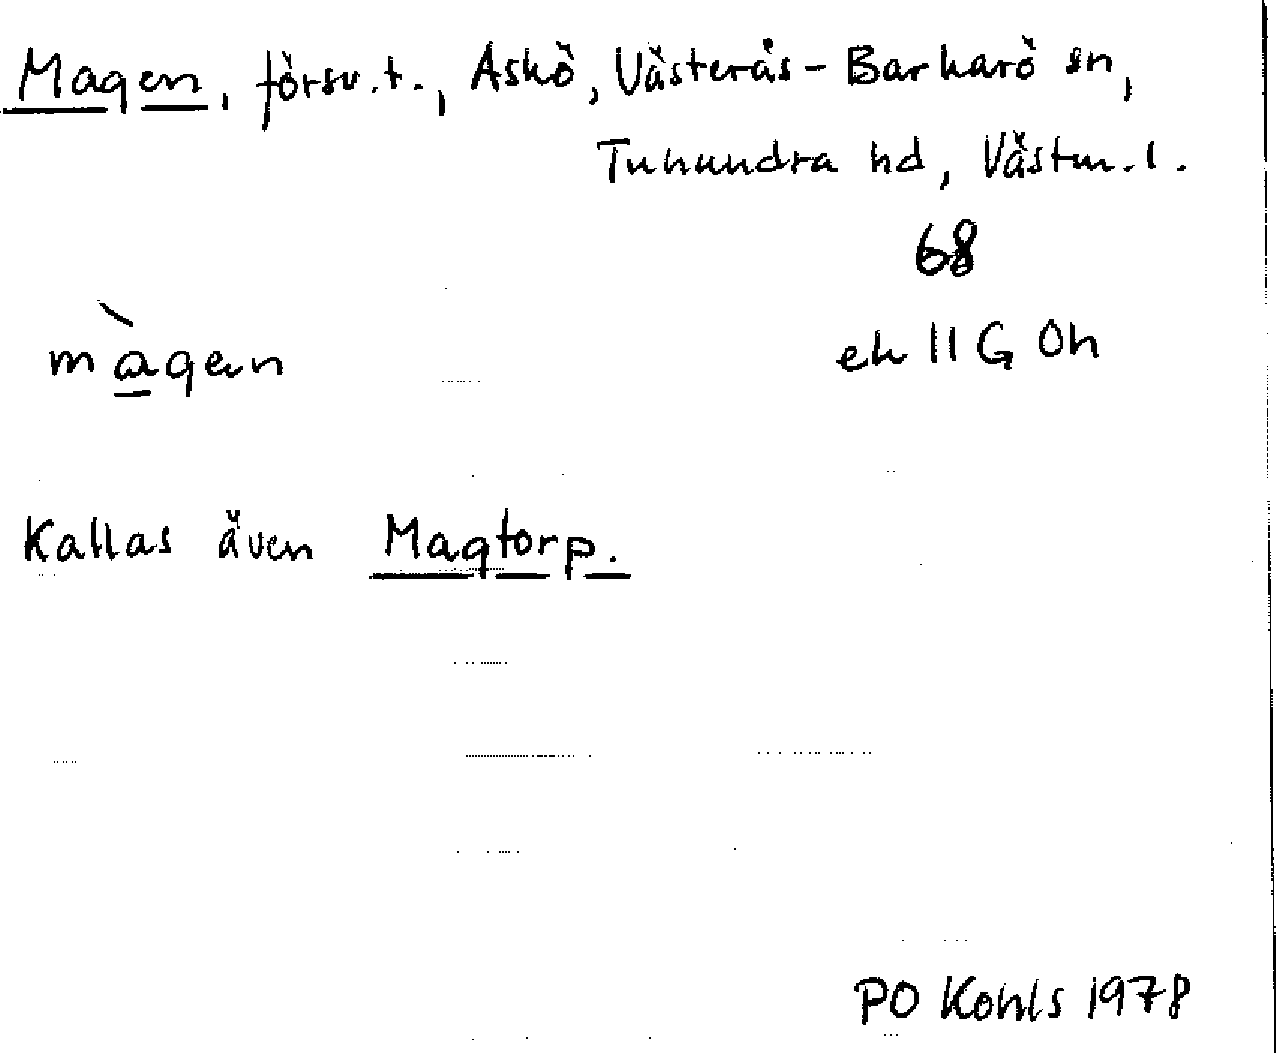 Magen, försv.t., Askö, Västerås-Barkarö sn,
Tuhundra hd, Västm.l.
68
màgen
ek 11 G 0h
Kallas även Magtorp.
PO Kohls 1978